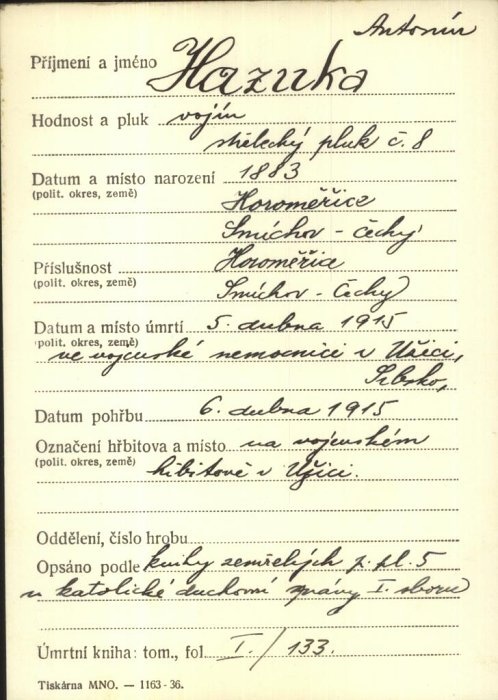 Antonín
Příjmení a jméno Hazuka
Hodnost a pluk vojín
střelecký pluk č. 8
Datum a místo narození 1883
(polit. okres, země) Horoměřice
Smíchov - Čechy
Příslušnost Horoměřice
(polit. okres, země) Smíchov - Čechy
Datum a místo úmrtí 5. dubna 1915
(polit. okres, země) ve vojenské nemocnici v Užici,
Srbsko,
Datum pohřbu 6. dubna 1915
Označení hřbitova a místo na vojenském
(polit. okres, země) hřbitově v Užici.
Oddělení, číslo hrobu
Opsáno podle knihy zemřelých p. pl. 5
u katolické duchovní správy I. sboru
Úmrtní kniha: tom., fol. I./133.
Tiskárna MNO. — 1163-36.